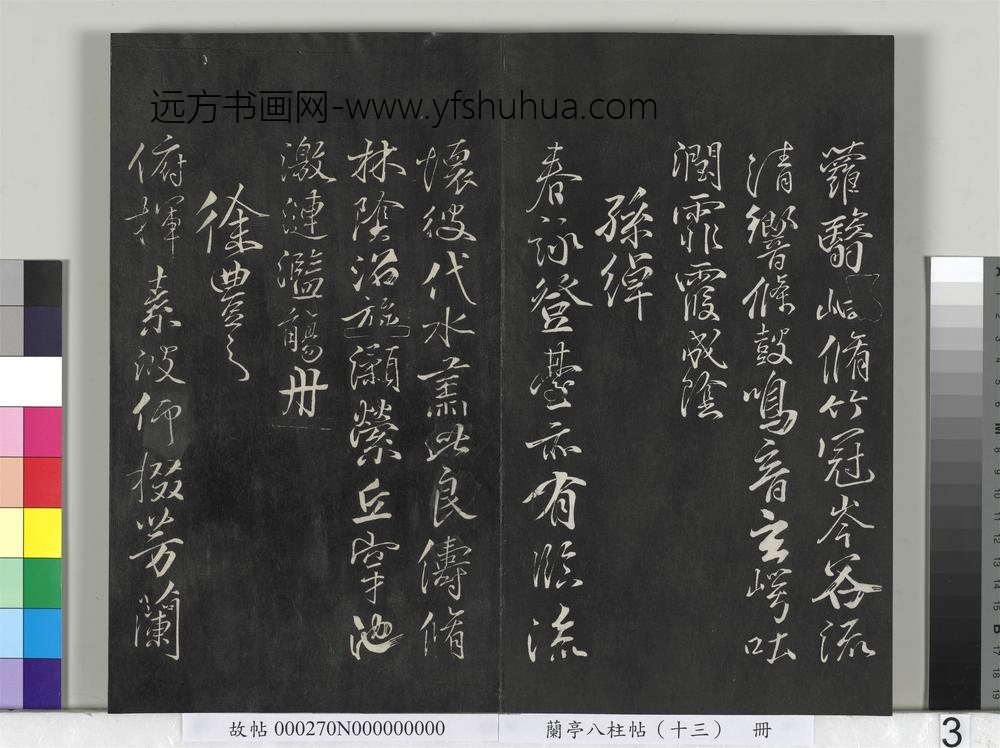 远方书画网-www.yfshuhua.com
蘿翳岫脩竹冠岑谷流
清響條鼓鳴音玄崿吐
潤霏霞成陰
孫綽
春詠登臺亦有臨流
懷彼代水肅此良儔脩
林陰沼旋瀨縈丘穿池
激漣濫觴舟
徐豐之
俯揮素波仰掇芳蘭
故帖 000270N000000000
蘭亭八柱帖（十三） 冊
3